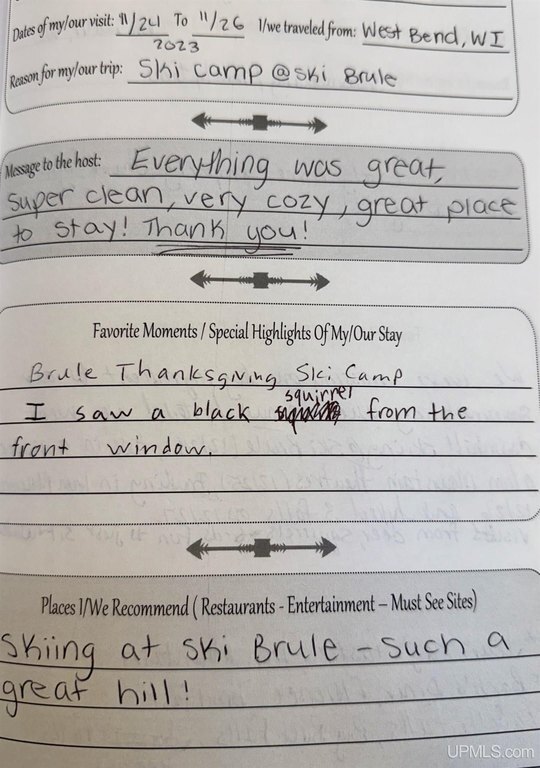 Dates of my/our visit: 11/24 To 11/26 I/we traveled from: West Bend, WI
2023
Reason for my/our trip: Ski camp @ Ski Brule
Message to the host: Everything was great,
super clean, very cozy, great place
to stay! Thank you!
Favorite Moments / Special Highlights Of My/Our Stay
Brule Thanksgiving Ski Camp
squirrel
I saw a black from the
front window.
Places I/We Recommend ( Restaurants - Entertainment – Must See Sites)
Skiing at Ski Brule - such a
great hill!
UPMLS.com